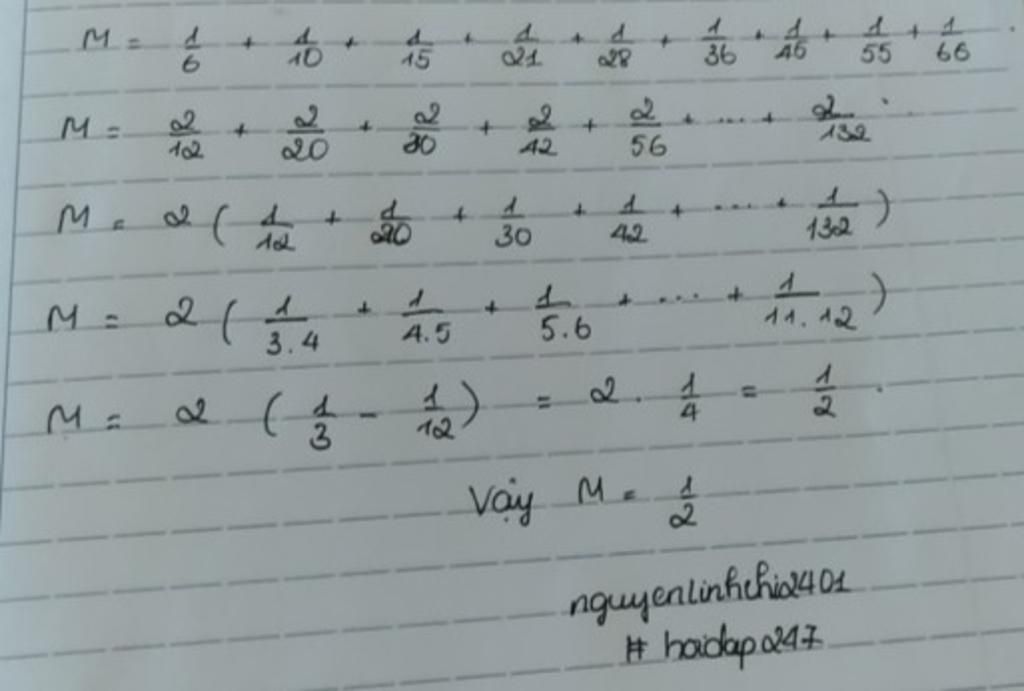 M = 1/6 + 1/10 + 1/15 + 1/21 + 1/28 + 1/36 + 1/45 + 1/55 + 1/66.
M = 2/12 + 2/20 + 2/30 + 2/42 + 2/56 + ... + 2/132.
M = 2 ( 1/12 + 1/20 + 1/30 + 1/42 + ... + 1/132 )
M = 2 ( 1/3.4 + 1/4.5 + 1/5.6 + ... + 1/11.12 )
M = 2 ( 1/3 - 1/12 ) = 2 . 1/4 = 1/2 .
Vậy M = 1/2
nguyenlinhchi2401
# hoidap247